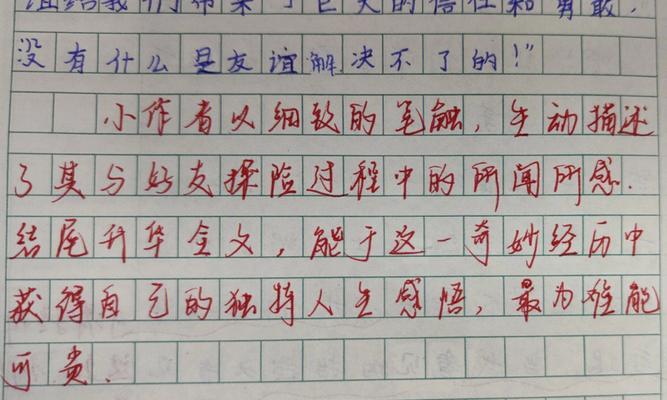 谊给我们带来了巨大的信任和勇敢.
没有什么是友谊解决不了的!”
小作者以细致的笔触，生动描述
了其与好友探险过程中的所闻所感.
结尾升华全文，能于这一奇妙经历中
获得自己的独特人生感悟，最为难能
可贵.